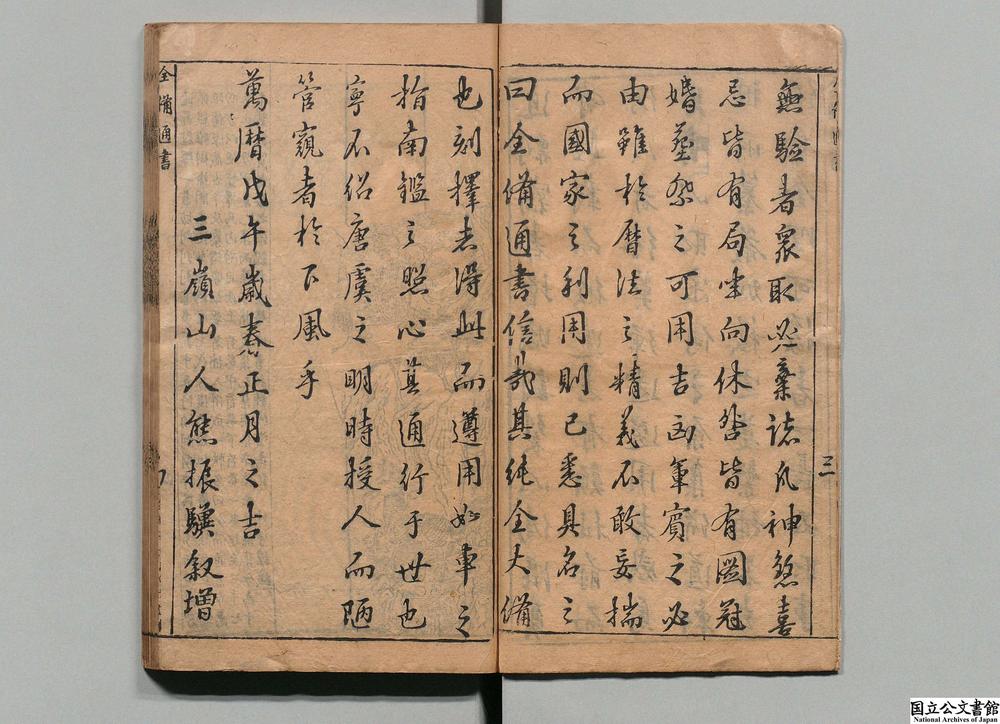 無驗者衆取必棄諸凡神煞喜
忌皆有局坐向休咎皆有圖冠
婚塟祭之可用吉凶軍賓之必
由雖於曆法之精義不敢妄揣
而國家之利用則已悉具名之
曰全備通書信哉其純全大備
三
也刻擇者得此而遵用如車之
指南鑑之照心其通行于世也
寧不侣唐虞之明時授人而陋
管窺者於下風乎
萬曆戊午歲泰正月之吉
三嶺山人熊振驥叙增
全備通書
国立公文書館
National Archives of Japan